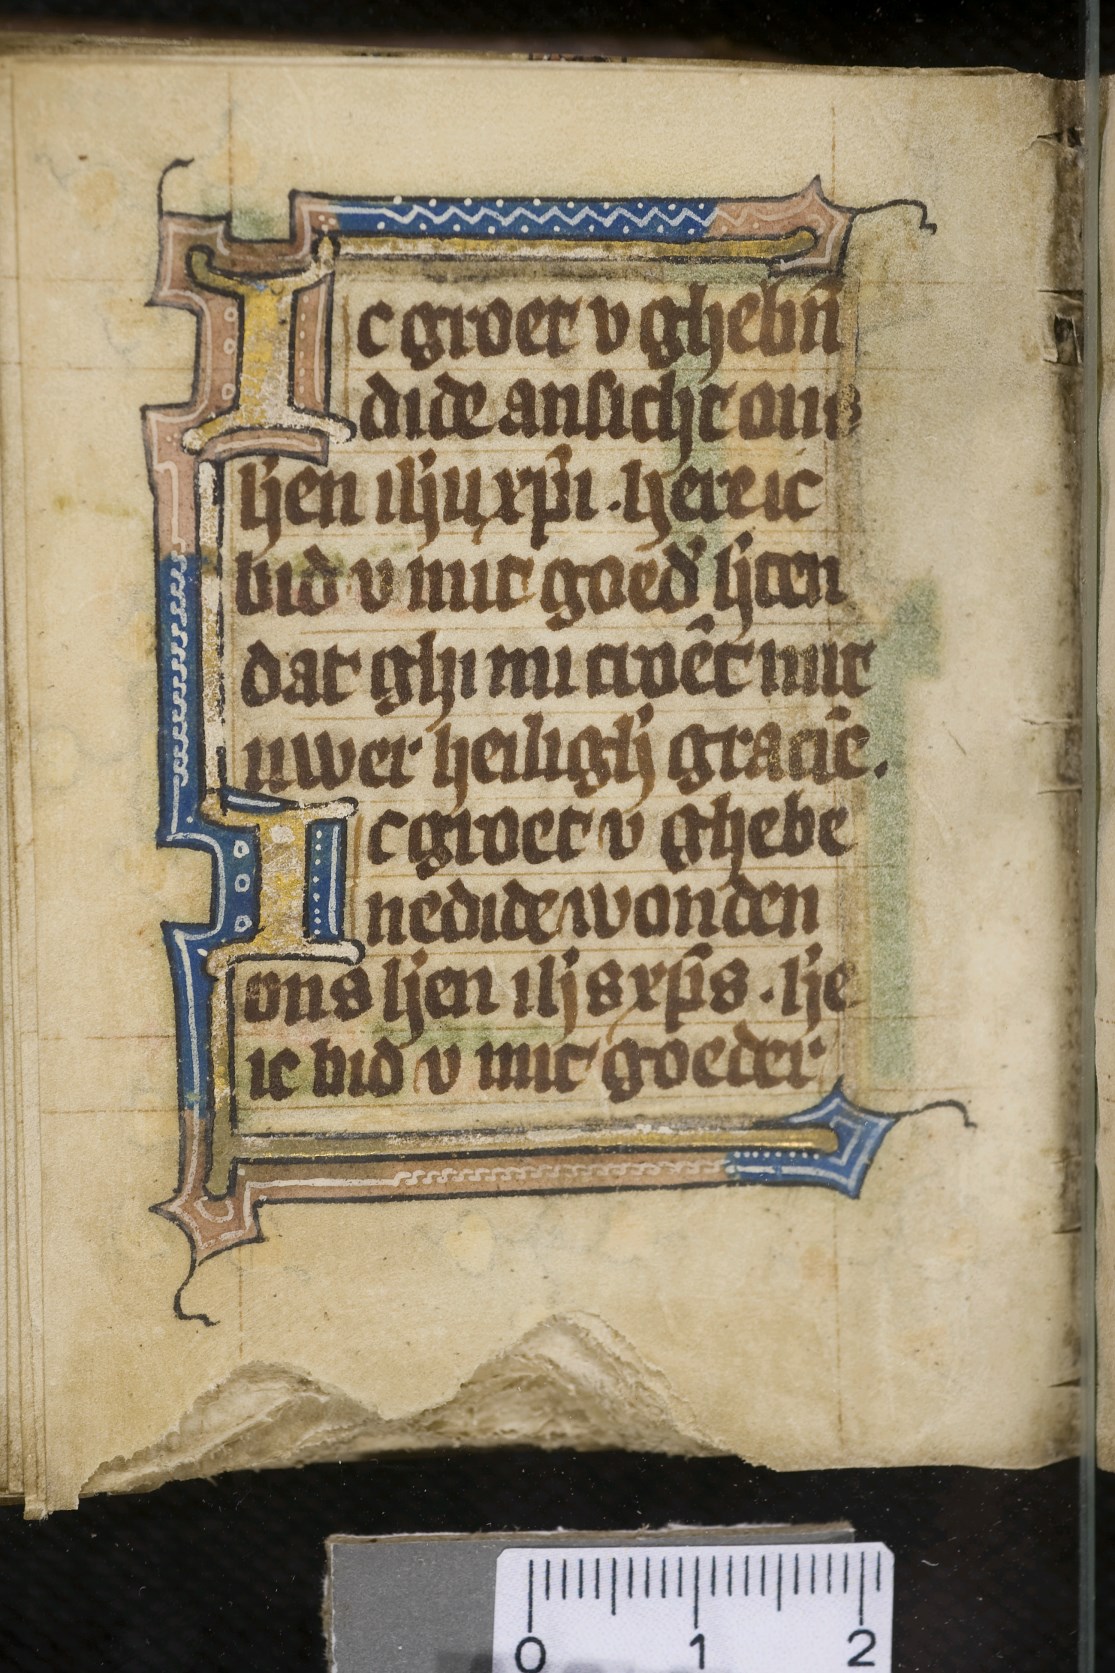 Ic groet v ghebn̄
dide ansicht ons
hen ihu xp̄i . here ic
bid v mit goed' hten
dat ghi mi troēt mit
uwer heiligh' gracie .
Ic groet v ghebe
nedide wonden
ons hen ihs xp̄s . he
ic bid v mit goeder
0 1 2